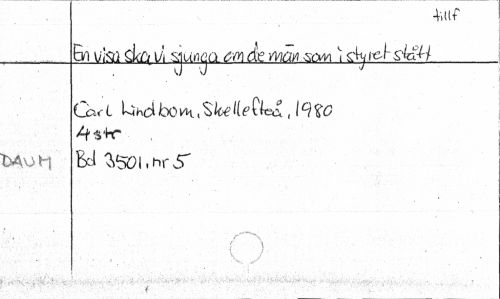 tillf
En visa ska vi sjunga om de män som i styret stått
Carl Lindbom, Skellefteå, 1980
4 str
DAUM Bd 3501, nr 5